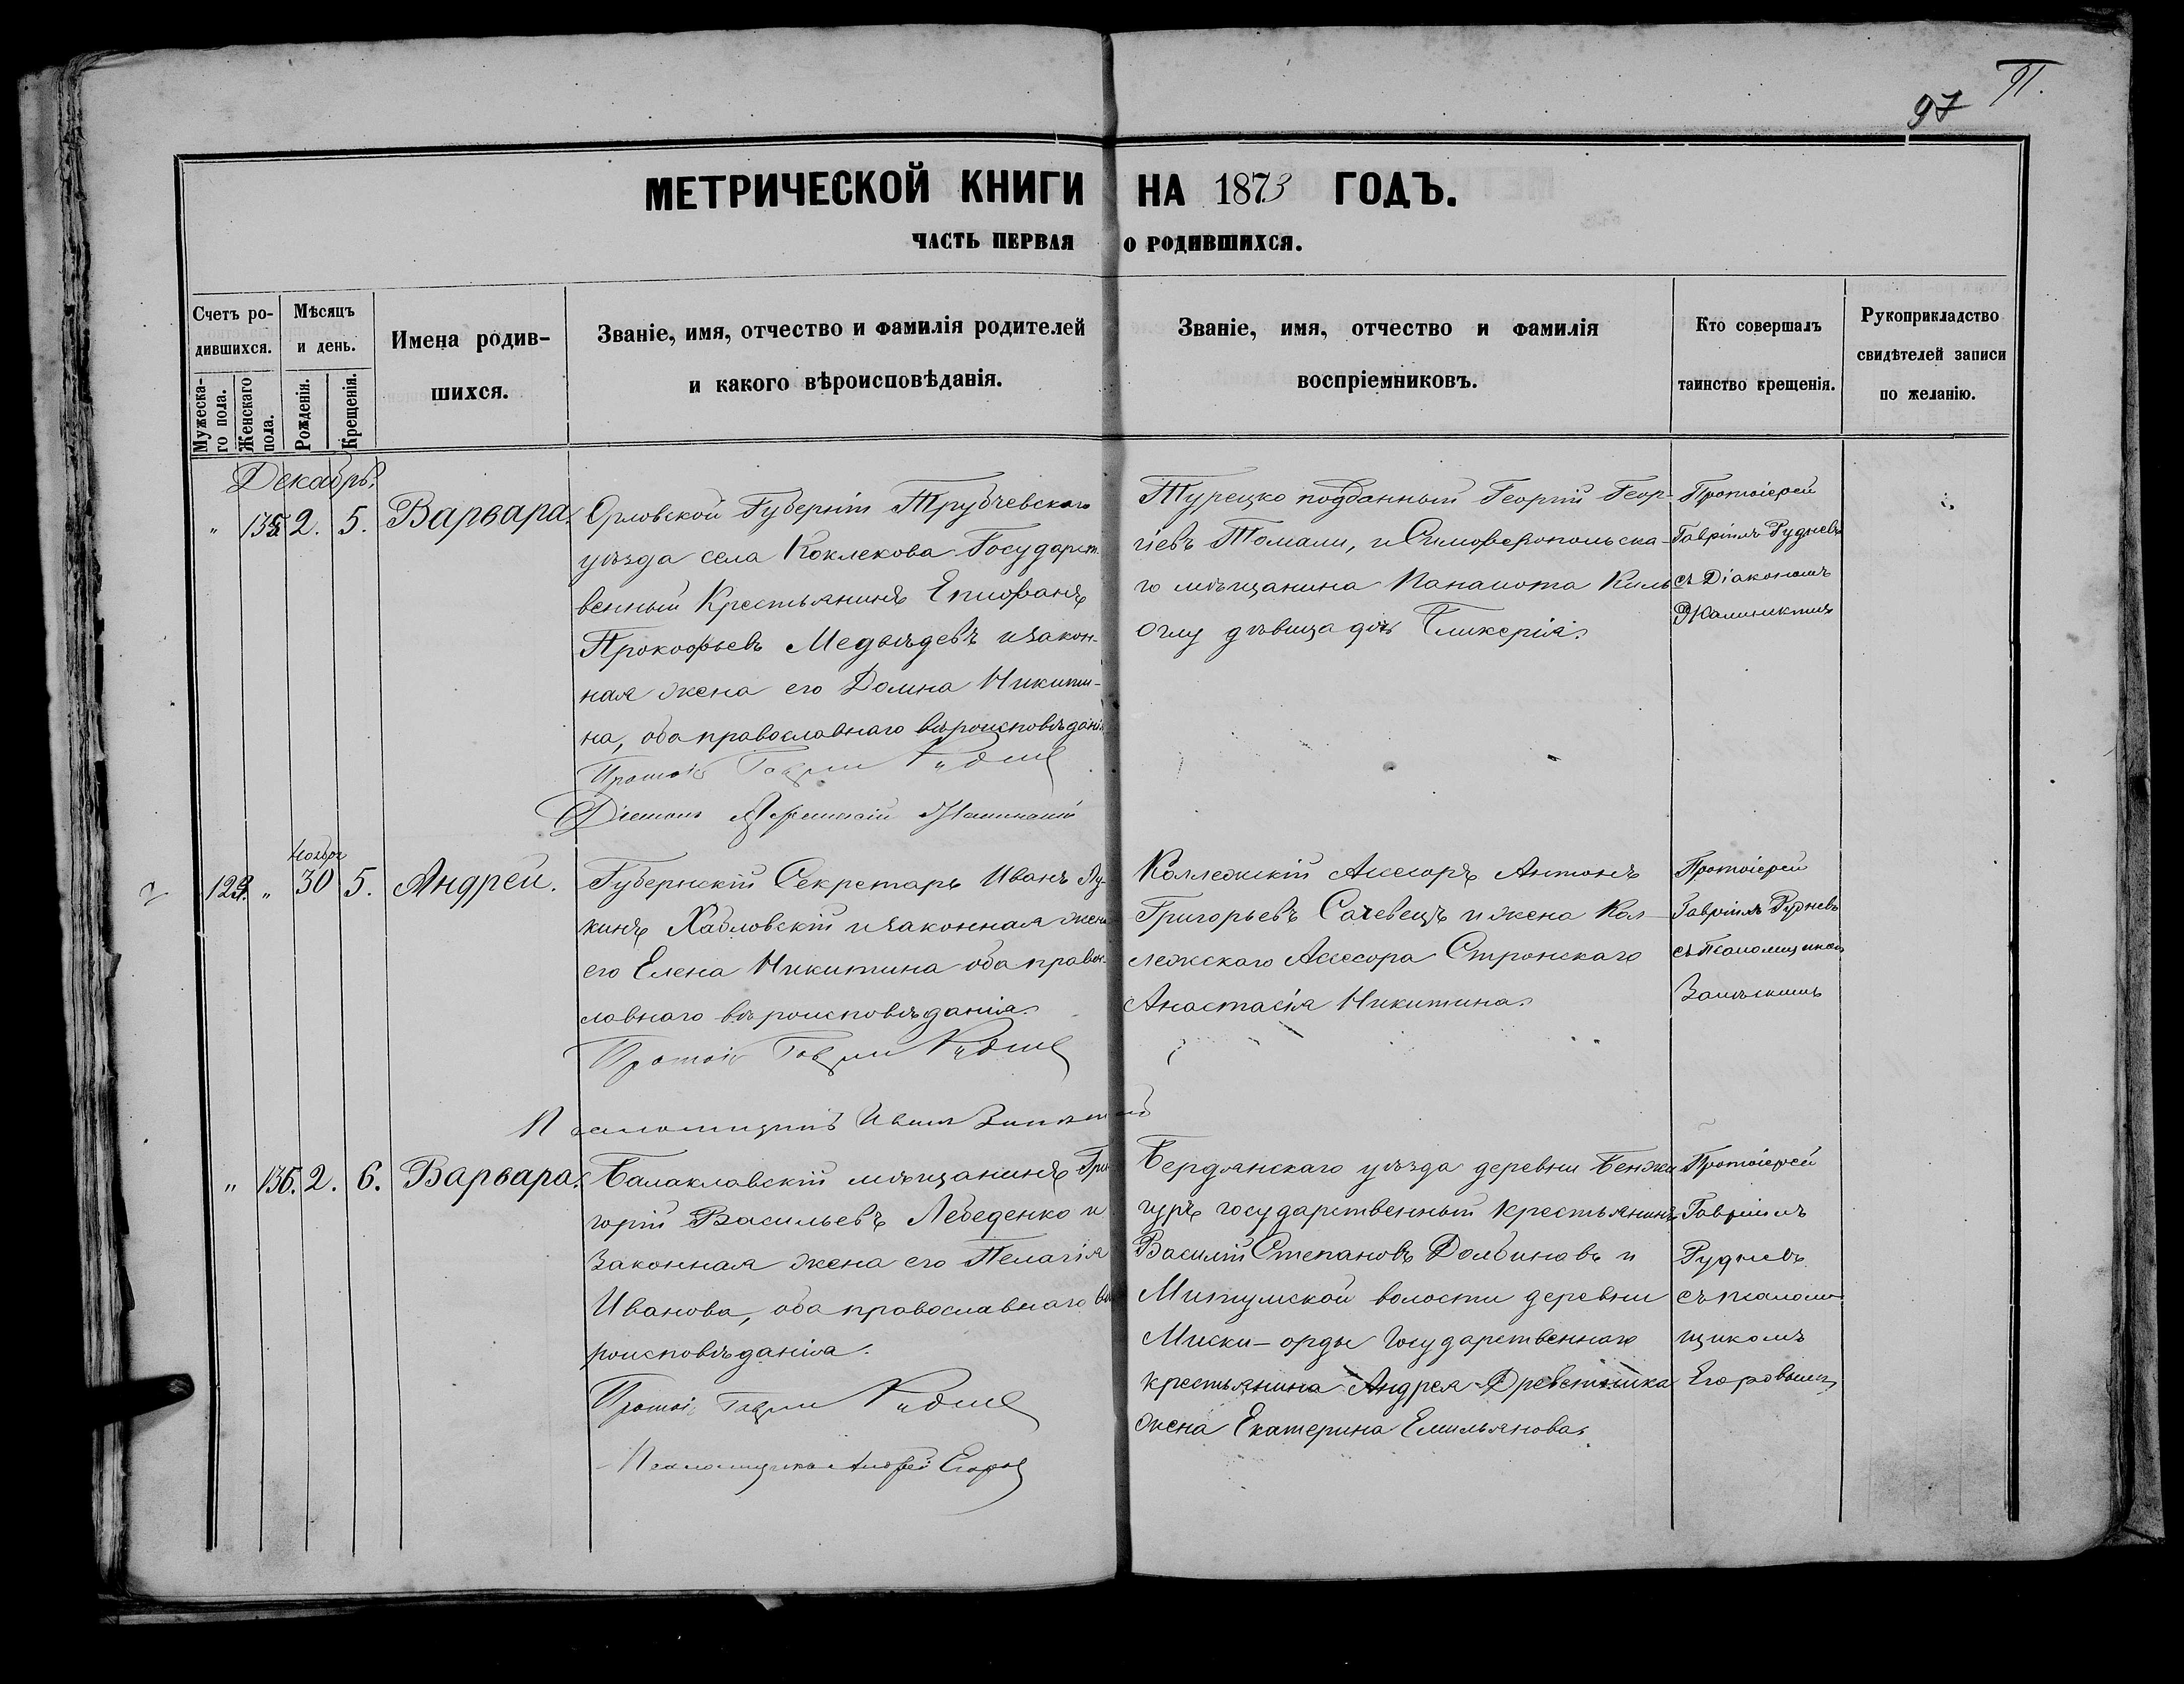 97 П.
МЕТРИЧЕСКОЙ КНИГИ НА 1873 ГОДЪ.
ЧАСТЬ ПЕРВАЯ О РОДИВШИХСЯ.
Счетъ ро-
дившихся.
Мужеска-
го пола.
Женскаго
пола.
Мѣсяцъ
и день.
Рожденія.
Крещенія.
Имена родив-
шихся.
Званіе, имя, отчество и фамилія родителей
и какого вѣроисповѣданія.
Званіе, имя, отчество и фамилія
воспріемниковъ.
Кто совершалъ
таинство крещенія.
Рукоприкладство
свидѣтелей записи
по желанію.
Декабрь.
" 135. 2. 5. Варвара.
Орловской Губерніи Трубчевскаго
уѣзда села Коклекова Государст-
венный Крестьянинъ Епифанъ
Прокофьевъ Медвѣдевъ и закон-
ная жена его Домна Никити-
на, оба православнаго вѣроисповѣданія
Протоіе Гаврии Руднев
Діаконъ
Турецко подданный Георгій Геор-
гіевъ Томали, и Симферопольска-
го мѣщанина Панаиота Киль
оглу дѣвица дочь Гликерія.
Протоіерей
Гавріилъ Рудневъ
съ Діакономъ
129. " Ноября 30 5. Андрей.
Губернскій Секретарь Иванъ Лу-
кинъ Хабловскій и законная жена
его Елена Никитина оба правос-
лавнаго вѣроисповѣданія.
Протоіе Гаврии Руднев
Псаломщикъ Иванъ
Коллежскій Асесоръ Антонъ
Григорьевъ Сачевецъ и жена Кол-
лежскаго Асессора Стронскаго
Анастасія Никитина.
Протоіерей
Гавріилъ Рудневъ
съ Псаломщикомъ
" 136. 2. 6. Варвара.
Балаклавскій мѣщанинъ Гри-
горій Васильевъ Лебеденко и
законная жена его Пелагія
Иванова, оба православнаго вѣ-
роисповѣданія.
Протоі Гаврии Руднев
Псаломщикъ Андрей Егоров
Бердянскаго уѣзда деревни
государственный крестьянинъ
Василій Степановъ Долбиновъ и
волости деревни
орды Государственнаго
крестьянина Андрея
жена Екатерина Емильянова.
Протоіерей
Гавріилъ
Рудневъ
съ псалом-
щикомъ
Егоровымъ